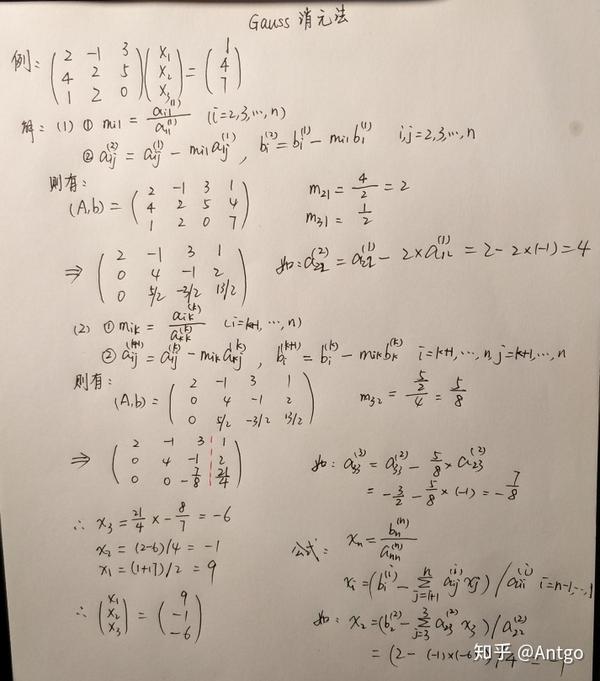 Gauss 消元法
例: ( 2 -1 3 ; 4 2 5 ; 1 2 0 ) ( x₁ ; x₂ ; x₃ ) = ( 1 ; 4 ; 7 )
解: (1) ① mᵢ₁ = aᵢ₁⁽¹⁾ / a₁₁⁽¹⁾ (i=2,3,…,n)
② aᵢⱼ⁽²⁾ = aᵢⱼ⁽¹⁾ - mᵢ₁a₁ⱼ⁽¹⁾ , bᵢ⁽²⁾ = bᵢ⁽¹⁾ - mᵢ₁b₁⁽¹⁾ i,j=2,3,…,n
则有:
(A,b) = ( 2 -1 3 1 ; 4 2 5 4 ; 1 2 0 7 )
m₂₁ = 4/2 = 2
m₃₁ = 1/2
⇒ ( 2 -1 3 1 ; 0 4 -1 2 ; 0 5/2 -3/2 13/2 )
如: a₂₂⁽²⁾ = a₂₂⁽¹⁾ - 2×a₁₂⁽¹⁾ = 2-2×(-1) = 4
(2) ① mᵢₖ = aᵢₖ⁽ᵏ⁾ / aₖₖ⁽ᵏ⁾ (i=k+1,…,n)
② aᵢⱼ⁽ᵏ⁺¹⁾ = aᵢⱼ⁽ᵏ⁾ - mᵢₖaₖⱼ⁽ᵏ⁾ , bᵢ⁽ᵏ⁺¹⁾ = bᵢ⁽ᵏ⁾ - mᵢₖbₖ⁽ᵏ⁾ i=k+1,…,n, j=k+1,…,n
则有:
(A,b) = ( 2 -1 3 1 ; 0 4 -1 2 ; 0 5/2 -3/2 13/2 )
m₃₂ = (5/2)/4 = 5/8
⇒ ( 2 -1 3 1 ; 0 4 -1 2 ; 0 0 -7/8 21/4 )
如: a₃₃⁽³⁾ = a₃₃⁽²⁾ - 5/8 × a₂₃⁽²⁾
= -3/2 - 5/8 × (-1) = -7/8
∴ x₃ = 21/4 × -8/7 = -6
x₂ = (2-6)/4 = -1
x₁ = (1+17)/2 = 9
∴ ( x₁ ; x₂ ; x₃ ) = ( 9 ; -1 ; -6 )
公式: xₙ = bₙ⁽ⁿ⁾ / aₙₙ⁽ⁿ⁾
xᵢ = (bᵢ⁽ⁱ⁾ - Σⱼ₌ᵢ₊₁ⁿ aᵢⱼ⁽ⁱ⁾ xⱼ) / aᵢᵢ⁽ⁱ⁾ i=n-1,…,1
如: x₂ = (b₂⁽²⁾ - Σⱼ₌₃³ a₂₃⁽²⁾ x₃) / a₂₂⁽²⁾
= (2 - (-1)×(-6)) / 4 = -1
知乎 @Antgo